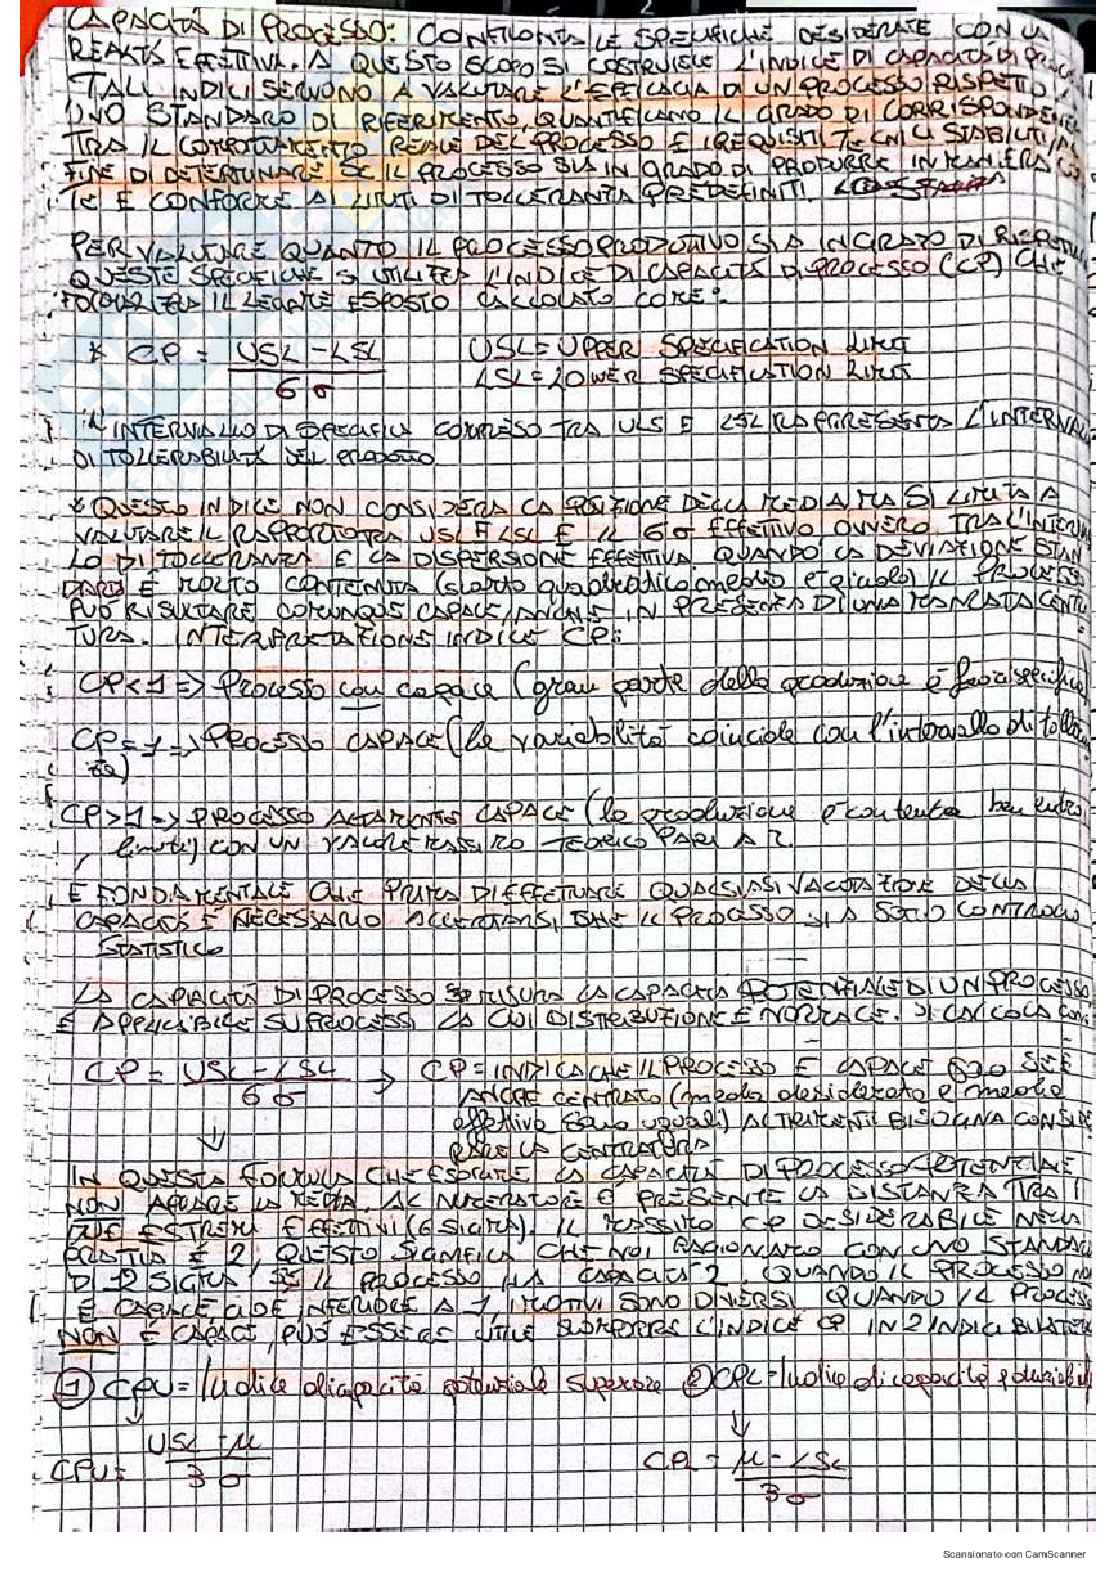 CAPACITÀ DI PROCESSO: CONFRONTA LE SPECIFICHE DESIDERATE CON LA
REALTÀ EFFETTIVA. A QUESTO SCOPO SI COSTRUISCE L'INDICE DI CAPACITÀ DI
TALI INDICI SERVONO A VALUTARE L'EFFICACIA DI UN PROCESSO RISPETTO
UNO STANDARD DI RIFERIMENTO, QUANTIFICANO IL GRADO DI CORRISPONDENZA
TRA IL COMPORTAMENTO REALE DEL PROCESSO E I REQUISITI TECNICI STABILITI
FINE DI DETERMINARE SE IL PROCESSO SIA IN GRADO DI PRODURRE IN MANIERA
TE E CONFORME AI LIMITI DI TOLLERANZA PREDEFINITI.
PER VALUTARE QUANTO IL PROCESSO PRODUTTIVO SIA IN GRADO DI
QUESTE SPECIFICHE SI UTILIZZA L'INDICE DI CAPACITÀ DI PROCESSO (CP) CHE
IL LEGAME ESPOSTO CALCOLATO COME:
* CP = USL - LSL USL = UPPER SPECIFICATION LIMIT
6σ LSL = LOWER SPECIFICATION LIMIT
L'INTERVALLO DI SPECIFICA COMPRESO TRA ULS E LSL RAPPRESENTA L'INTERVAL
DI TOLLERABILITÀ DEL PRODOTTO
* QUESTO INDICE NON CONSIDERA LA POSIZIONE DELLA MEDIA MA SI LIMITA A
VALUTARE IL RAPPORTO TRA USL E LSL E IL 6σ EFFETTIVO OVVERO TRA L'INTERVAL
LO DI TOLLERANZA E LA DISPERSIONE EFFETTIVA. QUANDO LA DEVIAZIONE STAN
DARD È MOLTO CONTENUTA (scarto quadratico medio è piccolo) IL PROCESSO
PUÒ RISULTARE COMUNQUE CAPACE, ANCHE IN PRESENZA DI UNA MANCATA CENTRA
TURA. INTERPRETAZIONE INDICE CP:
CP<1 => Processo non capace (gran parte della produzione è fuori specifica)
CP=1 => PROCESSO CAPACE (la variabilità coincide con l'intervallo di toller
za)
CP>1 -> PROCESSO ALTAMENTE CAPACE (la produzione è contenuta ben entro i
limiti) CON UN VALORE MASSIMO TEORICO PARI A 2.
È FONDAMENTALE CHE PRIMA DI EFFETTUARE QUALSIASI VALUTAZIONE DELLA
CAPACITÀ È NECESSARIO ACCERTARSI CHE IL PROCESSO SIA SOTTO CONTROLLO
STATISTICO
LA CAPACITÀ DI PROCESSO MISURA LA CAPACITÀ POTENZIALE DI UN PROCESSO
E APPLICABILE SU PROCESSI LA CUI DISTRIBUZIONE È NORMALE. SI CALCOLA
CP = USL - LSL → CP = INDICA CHE IL PROCESSO È CAPACE SOLO SE È
6σ ANCHE CENTRATO (media desiderata e media
↓ effettiva sono uguali) ALTRIMENTI BISOGNA CONSIDE
RARE LA CENTRATURA
IN QUESTA FORMULA CHE ESPRIME LA CAPACITÀ DI PROCESSO POTENZIALE
NON APPARE LA MEDIA. AL NUMERATORE È PRESENTE LA DISTANZA TRA I
DUE ESTREMI EFFETTIVI (6 SIGMA). IL MASSIMO CP DESIDERABILE NELLA
PRATICA È 2, QUESTO SIGNIFICA CHE NOI RAGIONIAMO CON UNO STANDARD
DI 12 SIGMA SE IL PROCESSO HA CAPACITÀ 2. QUANDO IL PROCESSO NON
È CAPACE CIOÈ INFERIORE A 1, I MOTIVI SONO DIVERSI. QUANDO IL PROCESSO
NON È CAPACE, PUÒ ESSERE UTILE SCOMPORRE L'INDICE CP IN 2 INDICI BILATERALI
① CPU = Indice di capacità potenziale superiore ② CPL = Indice di capacità potenziale
↓ ↓
CPU = USL - μ CPL = μ - LSL
3σ 3σ
Scansionato con CamScanner